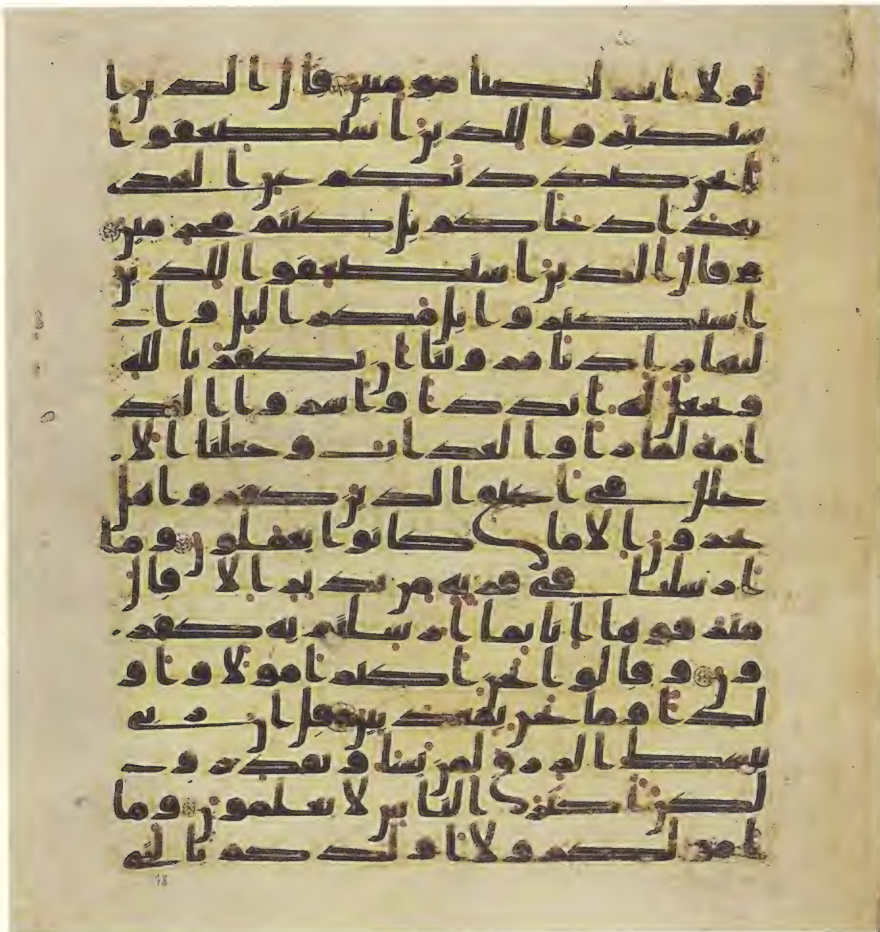 لولا انتم لكنا مومنين قال الذين ا
ستكبروا للذين استضعفوا ا
نحن صددنكم عن الهدى
بعد اذ جاكم بل كنتم مجرمين
وقال الذين استضعفوا للذين
استكبروا بل مكر اليل وا
لنهار اذ تامروننا ان نكفر بالله
ونجعل له اندادا واسروا الند
امة لما راوا العذاب وجعلنا الا
غلل في اعناق الذين كفروا هل
يجزون الا ما كانوا يعملون وما
ارسلنا في قرية من نذير الا قال
مترفوها انا بما ارسلتم به كفر
ون وقالوا نحن اكثر امولا واو
لدا وما نحن بمعذبين قل ان ربي
يبسط الرزق لمن يشا ويقدر و
لكن اكثر الناس لا يعلمون وما
امولكم ولا اولدكم بالتي